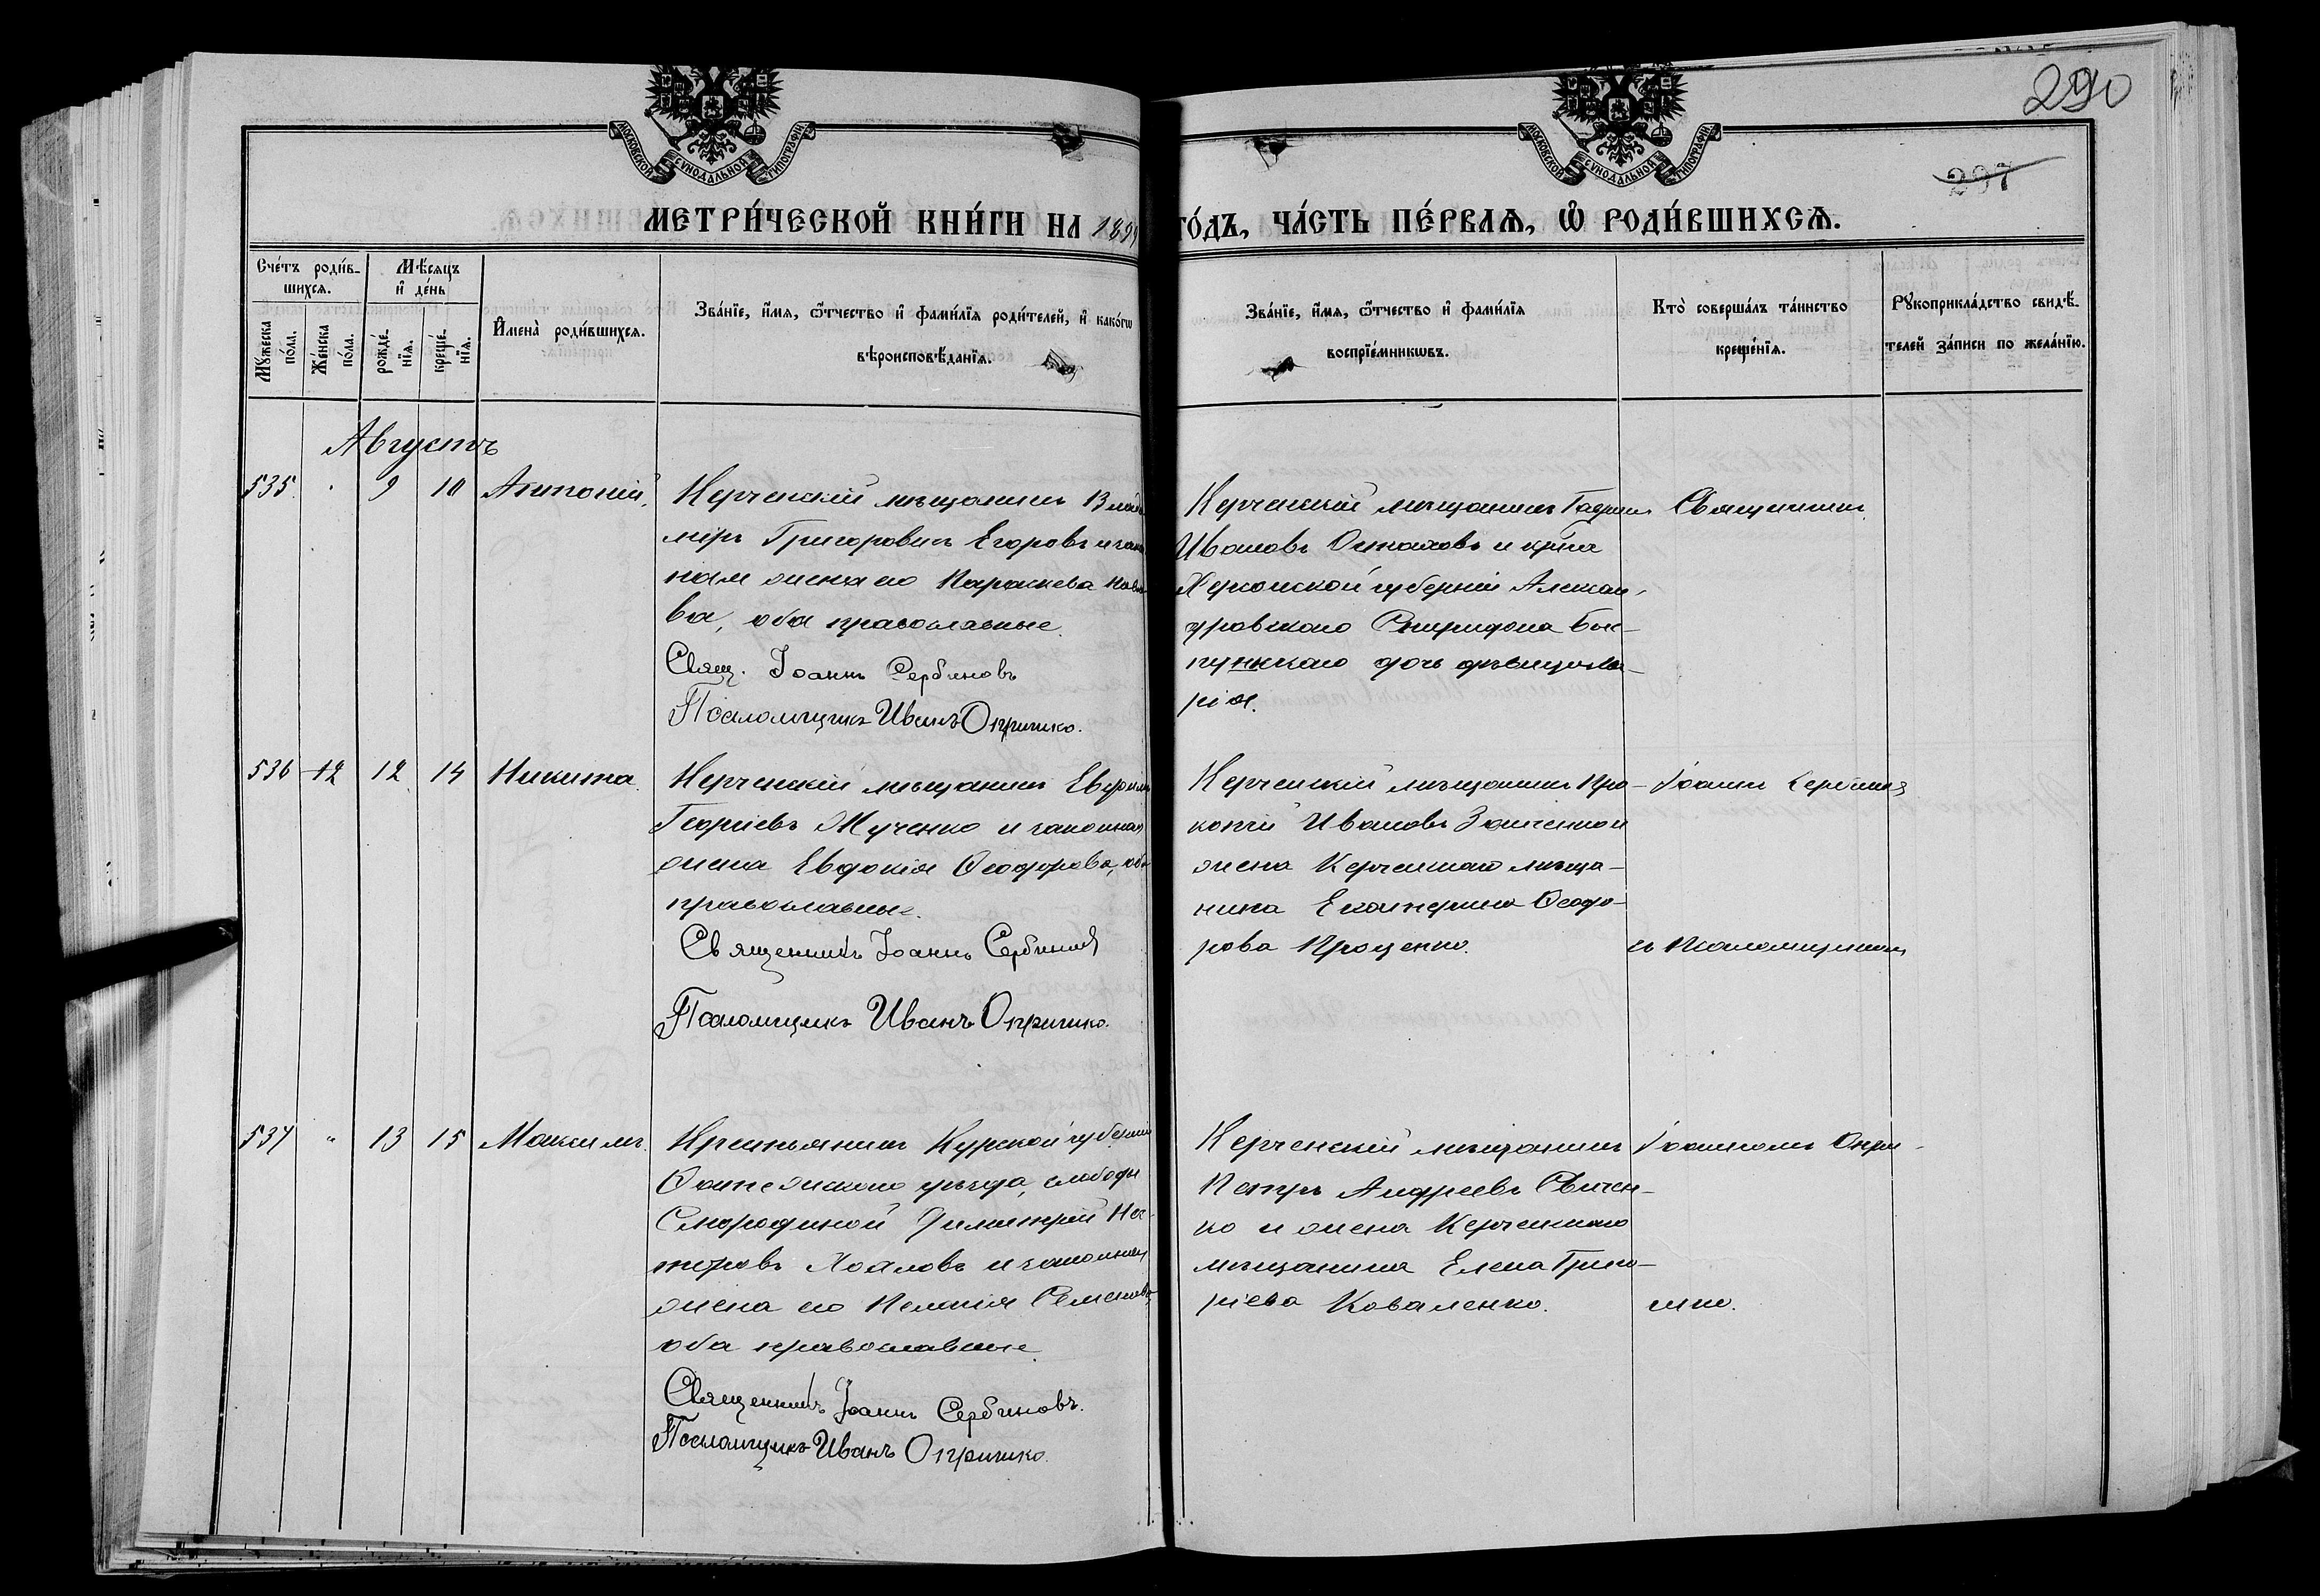 290
297
МОСКОВСКОЙ СѴНОДАЛЬНОЙ ТИПОГРАФІИ
МОСКОВСКОЙ СѴНОДАЛЬНОЙ ТИПОГРАФІИ
МЕТРИ́ЧЕСКОЙ КНИ́ГИ НА 189
ГО́ДЪ, ЧА́СТЬ ПЕ́РВАЯ, Ѡ РОДИ́ВШИХСЯ.
Сче́тъ роди́в-
шихся.
Мѣ́сяцъ
и҆ де́нь
Мꙋ́жеска
по́ла.
Же́нска
по́ла.
рожде́-
нїя.
креще́-
нїя.
И҆мена̀ роди́вшихся.
Зва́нїе, и҆́мя, ѻ҆́тчество и҆ фами́лїя роди́телей, и҆ како́гѡ
вѣроисповѣ́данїя.
Зва́нїе, и҆́мя, ѻ҆́тчество и҆ фами́лїя
воспрїе́мникѡвъ.
Кто̀ соверша́лъ та́инство
креще́нїя.
Рꙋкоприкла́дство свидѣ́-
телей за́писи по жела́нїю.
Августъ
535 9 10 Антоній.
Керченскій мѣщанинъ Влади
міръ Григоровичъ Егоровъ и закон
ная жена его Параскева Павло
ва, оба православные.
Свящ. Іоаннъ Сербиновъ
Псаломщикъ Иванъ Опришко.
Керченскій мѣщанинъ
Ивановъ и
Херсонской губерніи Алексан-
дровскаго Спиридона
дочь
рія.
Священникъ
536 12 12 14 Никита.
Керченскій мѣщанинъ Евфимій
Георгіевъ Мученко и законная
жена Евдокія Ѳеодорова, оба
православные.
Священникъ Іоаннъ Сербиновъ
Псаломщикъ Иванъ Опришко.
Керченскій мѣщанинъ Про-
копій Ивановъ Заиченко и
жена Керченскаго мѣща-
нина Екатерина Ѳеодо-
рова Проценко.
Іоаннъ Сербиновъ
съ Псаломщикомъ
537 " 13 15 Максимъ.
Крестьянинъ Курской губерніи
уѣзда, слободы
Смородиной Димитрій Не-
стеровъ и законная
жена его Пелагія Семенова,
оба православные.
Священникъ Іоаннъ Сербиновъ.
Псаломщикъ Иванъ Опришко.
Керченскій мѣщанинъ
Петръ Андреевъ Свичен-
ко и жена Керченскаго
мѣщанина Елена Григо-
ріева Коваленко.
Іоанномъ Опри-
шко.